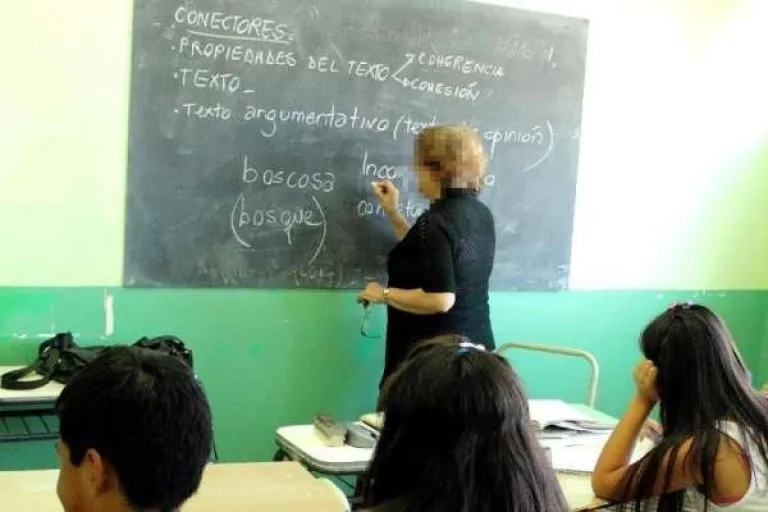 CONECTORES.
· PROPIEDADES DEL TEXTO COHERENCIA
COHESIÓN
· TEXTO_
· Texto argumentativo (texto opinión)
boscosa
(bosque)